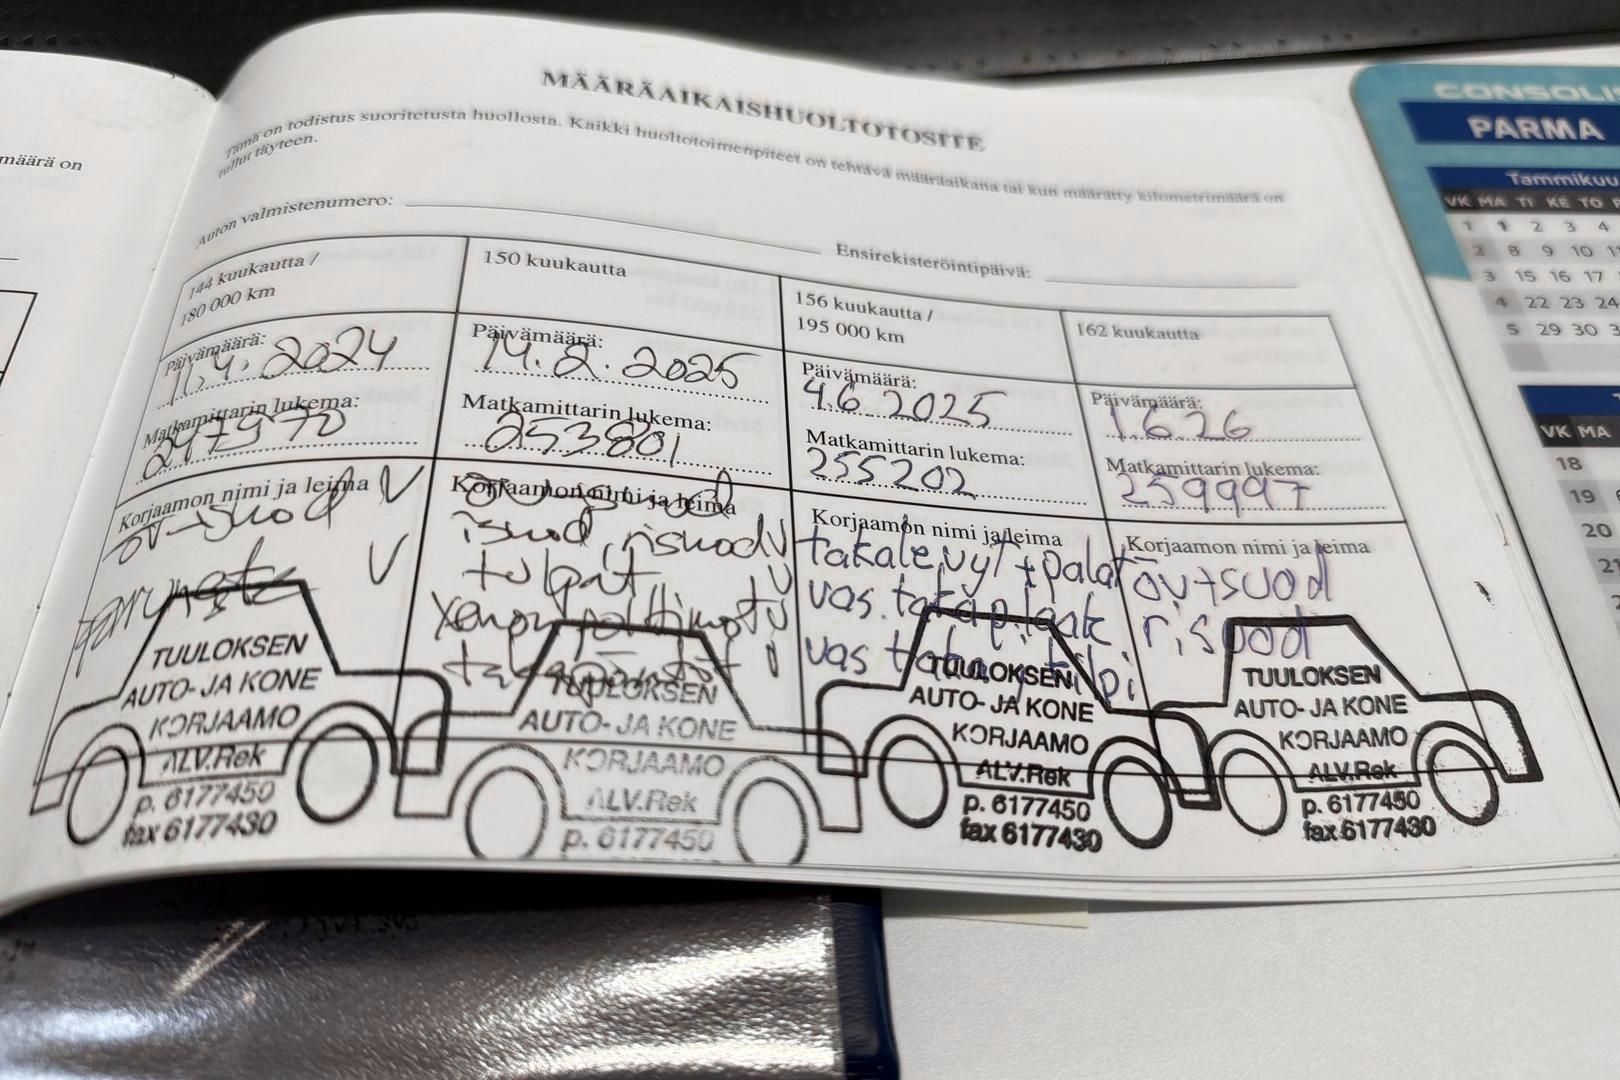 määrä on
MÄÄRÄAIKAISHUOLTOTOSITE
Tämä on todistus suoritetusta huollosta. Kaikki huoltotoimenpiteet on tehtävä määräaikana tai kun määrätty kilometrimäärä on
tullut täyteen.
Auton valmistenumero:
Ensirekisteröintipäivä:
144 kuukautta /
180 000 km
Päivämäärä:
11.4.2024
Matkamittarin lukema:
247970
Korjaamon nimi ja leima
öv+suod V
V
TUULOKSEN
AUTO- JA KONE
KORJAAMO
ALV.Rek
p. 6177450
fax 6177430
150 kuukautta
Päivämäärä:
14.2.2025
Matkamittarin lukema:
253801
Korjaamon nimi ja leima
isuod, risuod V
tulpat V
TUULOKSEN
AUTO- JA KONE
KORJAAMO
ALV.Rek
p. 6177450
156 kuukautta /
195 000 km
Päivämäärä:
4.6.2025
Matkamittarin lukema:
255202
Korjaamon nimi ja leima
takalevyt+palat
vas.
vas
TUULOKSEN
AUTO- JA KONE
KORJAAMO
ALV.Rek
p. 6177450
fax 6177430
162 kuukautta
Päivämäärä:
1626
Matkamittarin lukema:
259997
Korjaamon nimi ja leima
öv+suod
risuod
TUULOKSEN
AUTO- JA KONE
KORJAAMO
ALV.Rek
p. 6177450
fax 6177430
CONSOLIS
PARMA
Tammikuu
VK MA TI KE TO
1 1 2 3 4
2 8 9 10 11
3 15 16 17
4 22 23 24
5 29 30 3
T
VK MA
18
19
20
21